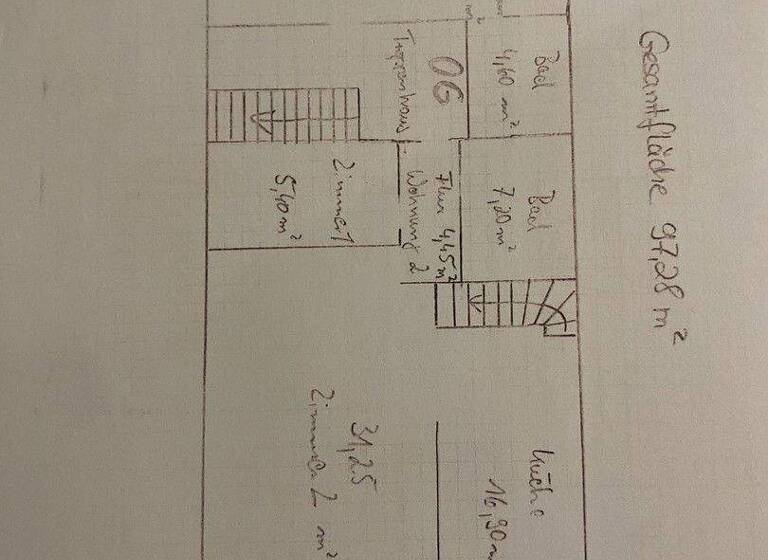 Gesamtfläche 97,28 m²
Bad
4,40 m²
OG
Treppenhaus
Bad
7,20 m²
Flur 4,45 m²
Wohnung 2
Zimmer 1
5,40 m²
Küche
16,90 m
31,25
Zimmer 2 m²
m²